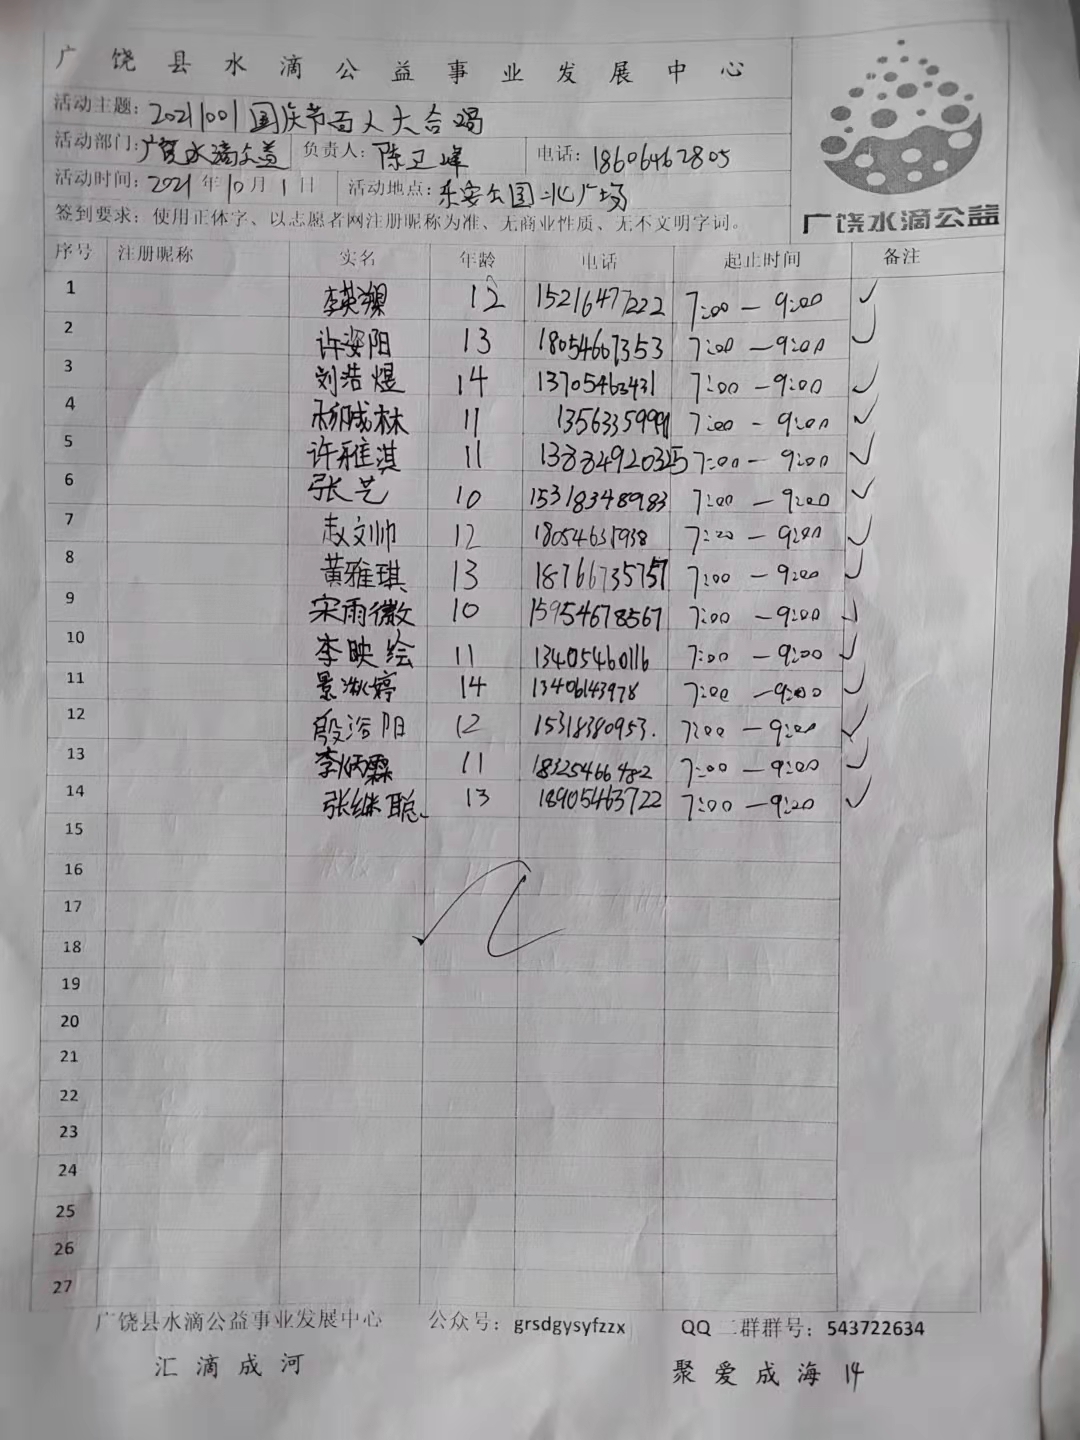 广饶县水滴公益事业发展中心
活动主题：20211001国庆节百人大合唱
活动部门：广饶水滴公益 负责人：陈卫峰 电话：18606462805
活动时间：2021年10月1日 活动地点：乐安公园北广场
签到要求：使用正体字、以志愿者网注册昵称为准、无商业性质、无不文明字词。
广饶水滴公益
序号 注册昵称 实名 年龄 电话 起止时间 备注
1 李英 12 15216477222 7:00－9:00 ✓
2 许姿阳 13 18054667353 7:00－9:00 ✓
3 刘浩煜 14 13705463431 7:00－9:00 ✓
4 杨成林 11 7:00－9:00 ✓
5 许雅淇 11 7:00－9:00 ✓
6 张艺 10 15318348983 7:00－9:00 ✓
7 赵文帅 12 18054631938 7:20－9:00 ✓
8 黄雅琪 13 18766735757 7:00－9:00 ✓
9 宋雨微 10 15954678567 7:00－9:00 ✓
10 李映绘 11 13405460116 7:00－9:00 ✓
11 景 婷 14 13406143978 7:00－9:00 ✓
12 殷 阳 12 15318380953. 7:00－9:00 ✓
13 李炳霖 11 18325466482 7:00－9:00 ✓
14 张继聪 13 18905463722 7:00－9:20 ✓
15
16
17
18
19
20
21
22
23
24
25
26
27
广饶县水滴公益事业发展中心 公众号：grsdgysyfzzx QQ二群群号：543722634
汇滴成河 聚爱成海 14